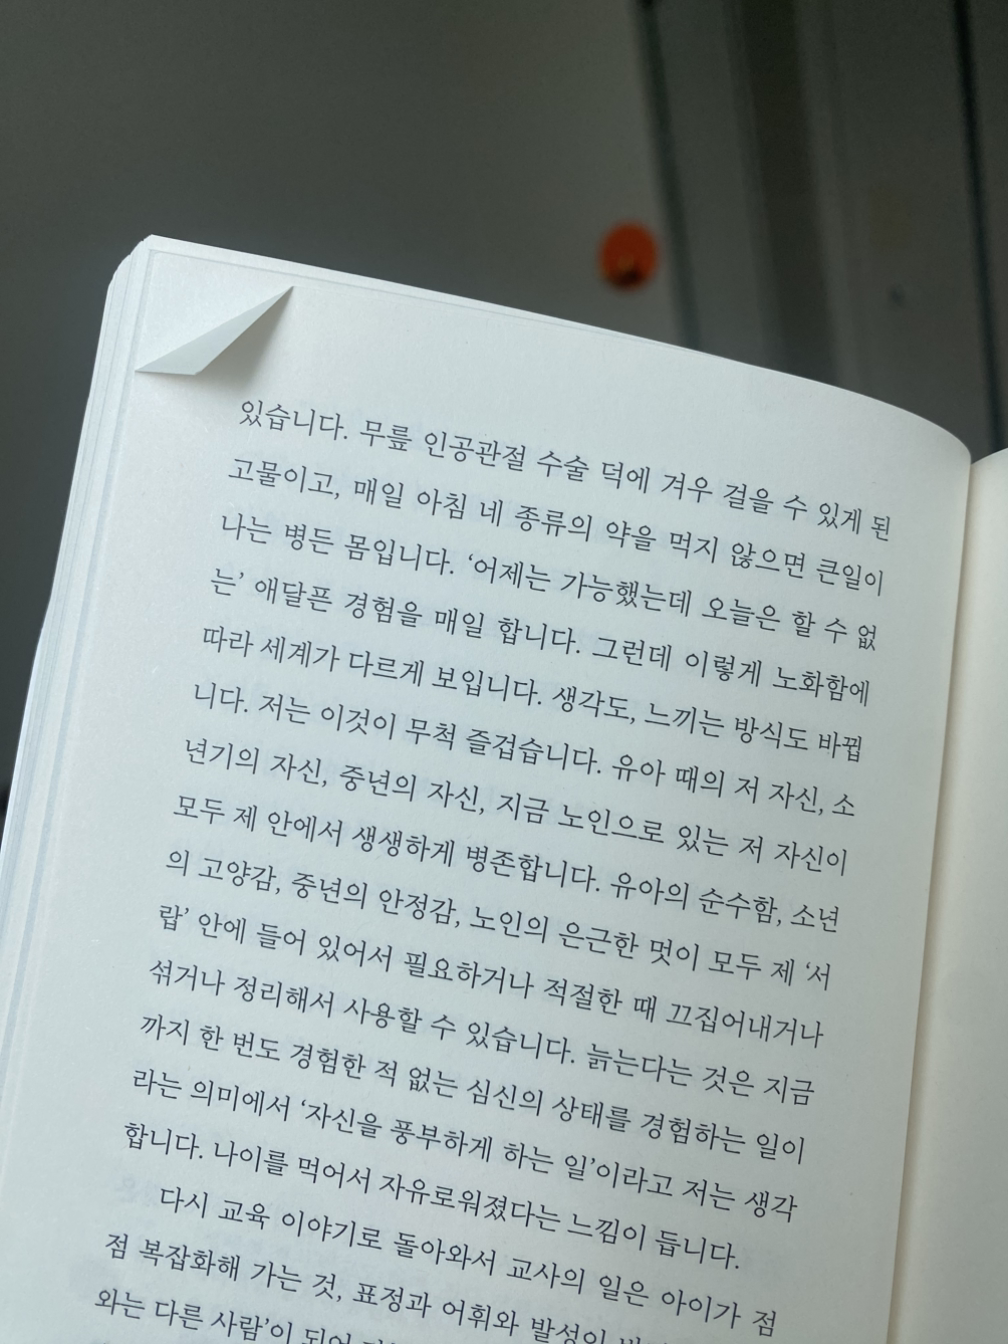 있습니다. 무릎 인공관절 수술 덕에 겨우 걸을 수 있게 된
고물이고, 매일 아침 네 종류의 약을 먹지 않으면 큰일이
나는 병든 몸입니다. ‘어제는 가능했는데 오늘은 할 수 없
는’ 애달픈 경험을 매일 합니다. 그런데 이렇게 노화함에
따라 세계가 다르게 보입니다. 생각도, 느끼는 방식도 바뀝
니다. 저는 이것이 무척 즐겁습니다. 유아 때의 저 자신, 소
년기의 자신, 중년의 자신, 지금 노인으로 있는 저 자신이
모두 제 안에서 생생하게 병존합니다. 유아의 순수함, 소년
의 고양감, 중년의 안정감, 노인의 은근한 멋이 모두 제 ‘서
랍’ 안에 들어 있어서 필요하거나 적절한 때 끄집어내거나
섞거나 정리해서 사용할 수 있습니다. 늙는다는 것은 지금
까지 한 번도 경험한 적 없는 심신의 상태를 경험하는 일이
라는 의미에서 ‘자신을 풍부하게 하는 일’이라고 저는 생각
합니다. 나이를 먹어서 자유로워졌다는 느낌이 듭니다.
다시 교육 이야기로 돌아와서 교사의 일은 아이가 점
점 복잡화해 가는 것, 표정과 어휘와 발성이
와는 다른 사람’이 되어